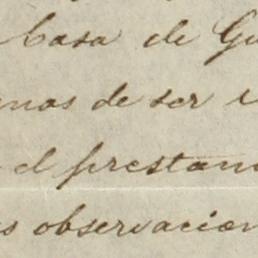 Casa de Gu
nas de ser
el prestam
s observacion